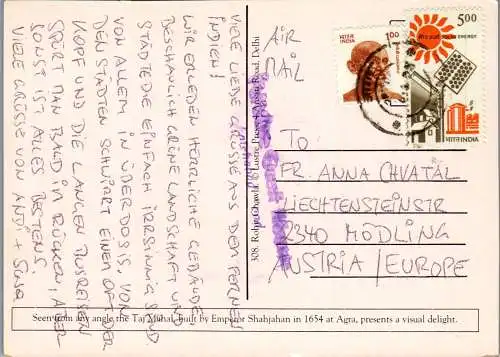 VIELE LIEBE GRÜSSE AUS DEM FERNEN
INDIEN!
WIR ERLEBEN HERRLICHE GEBÄUDE,
BESCHAULICH GRÜNE LANDSCHAFT UND
STÄDTE DIE EINFACH IRRSINNIG SIND
VON ALLEM IN ÜBERDOSIS. VON
DEN STÄDTEN SCHWIRRT EINEM OFT DER
KOPF UND DIE LANGEN BUSREISEN
SPÜRT MAN BALD IM RÜCKEN, ABER
SONST IST ALLES BESTENS.
VIELE GRÜSSE VON ANDI +
308. Rohit
Road, Delhi
AIR
MAIL
1.00
भारत INDIA
5.00
SOLAR ENERGY
भारत INDIA
TO
FR. ANNA CHVATAL
LIECHTENSTEINSTR
2340 MÖDLING
AUSTRIA / EUROPE
Seen from any angle the Taj Mahal, Built by Emperor Shahjahan in 1654 at Agra, presents a visual delight.